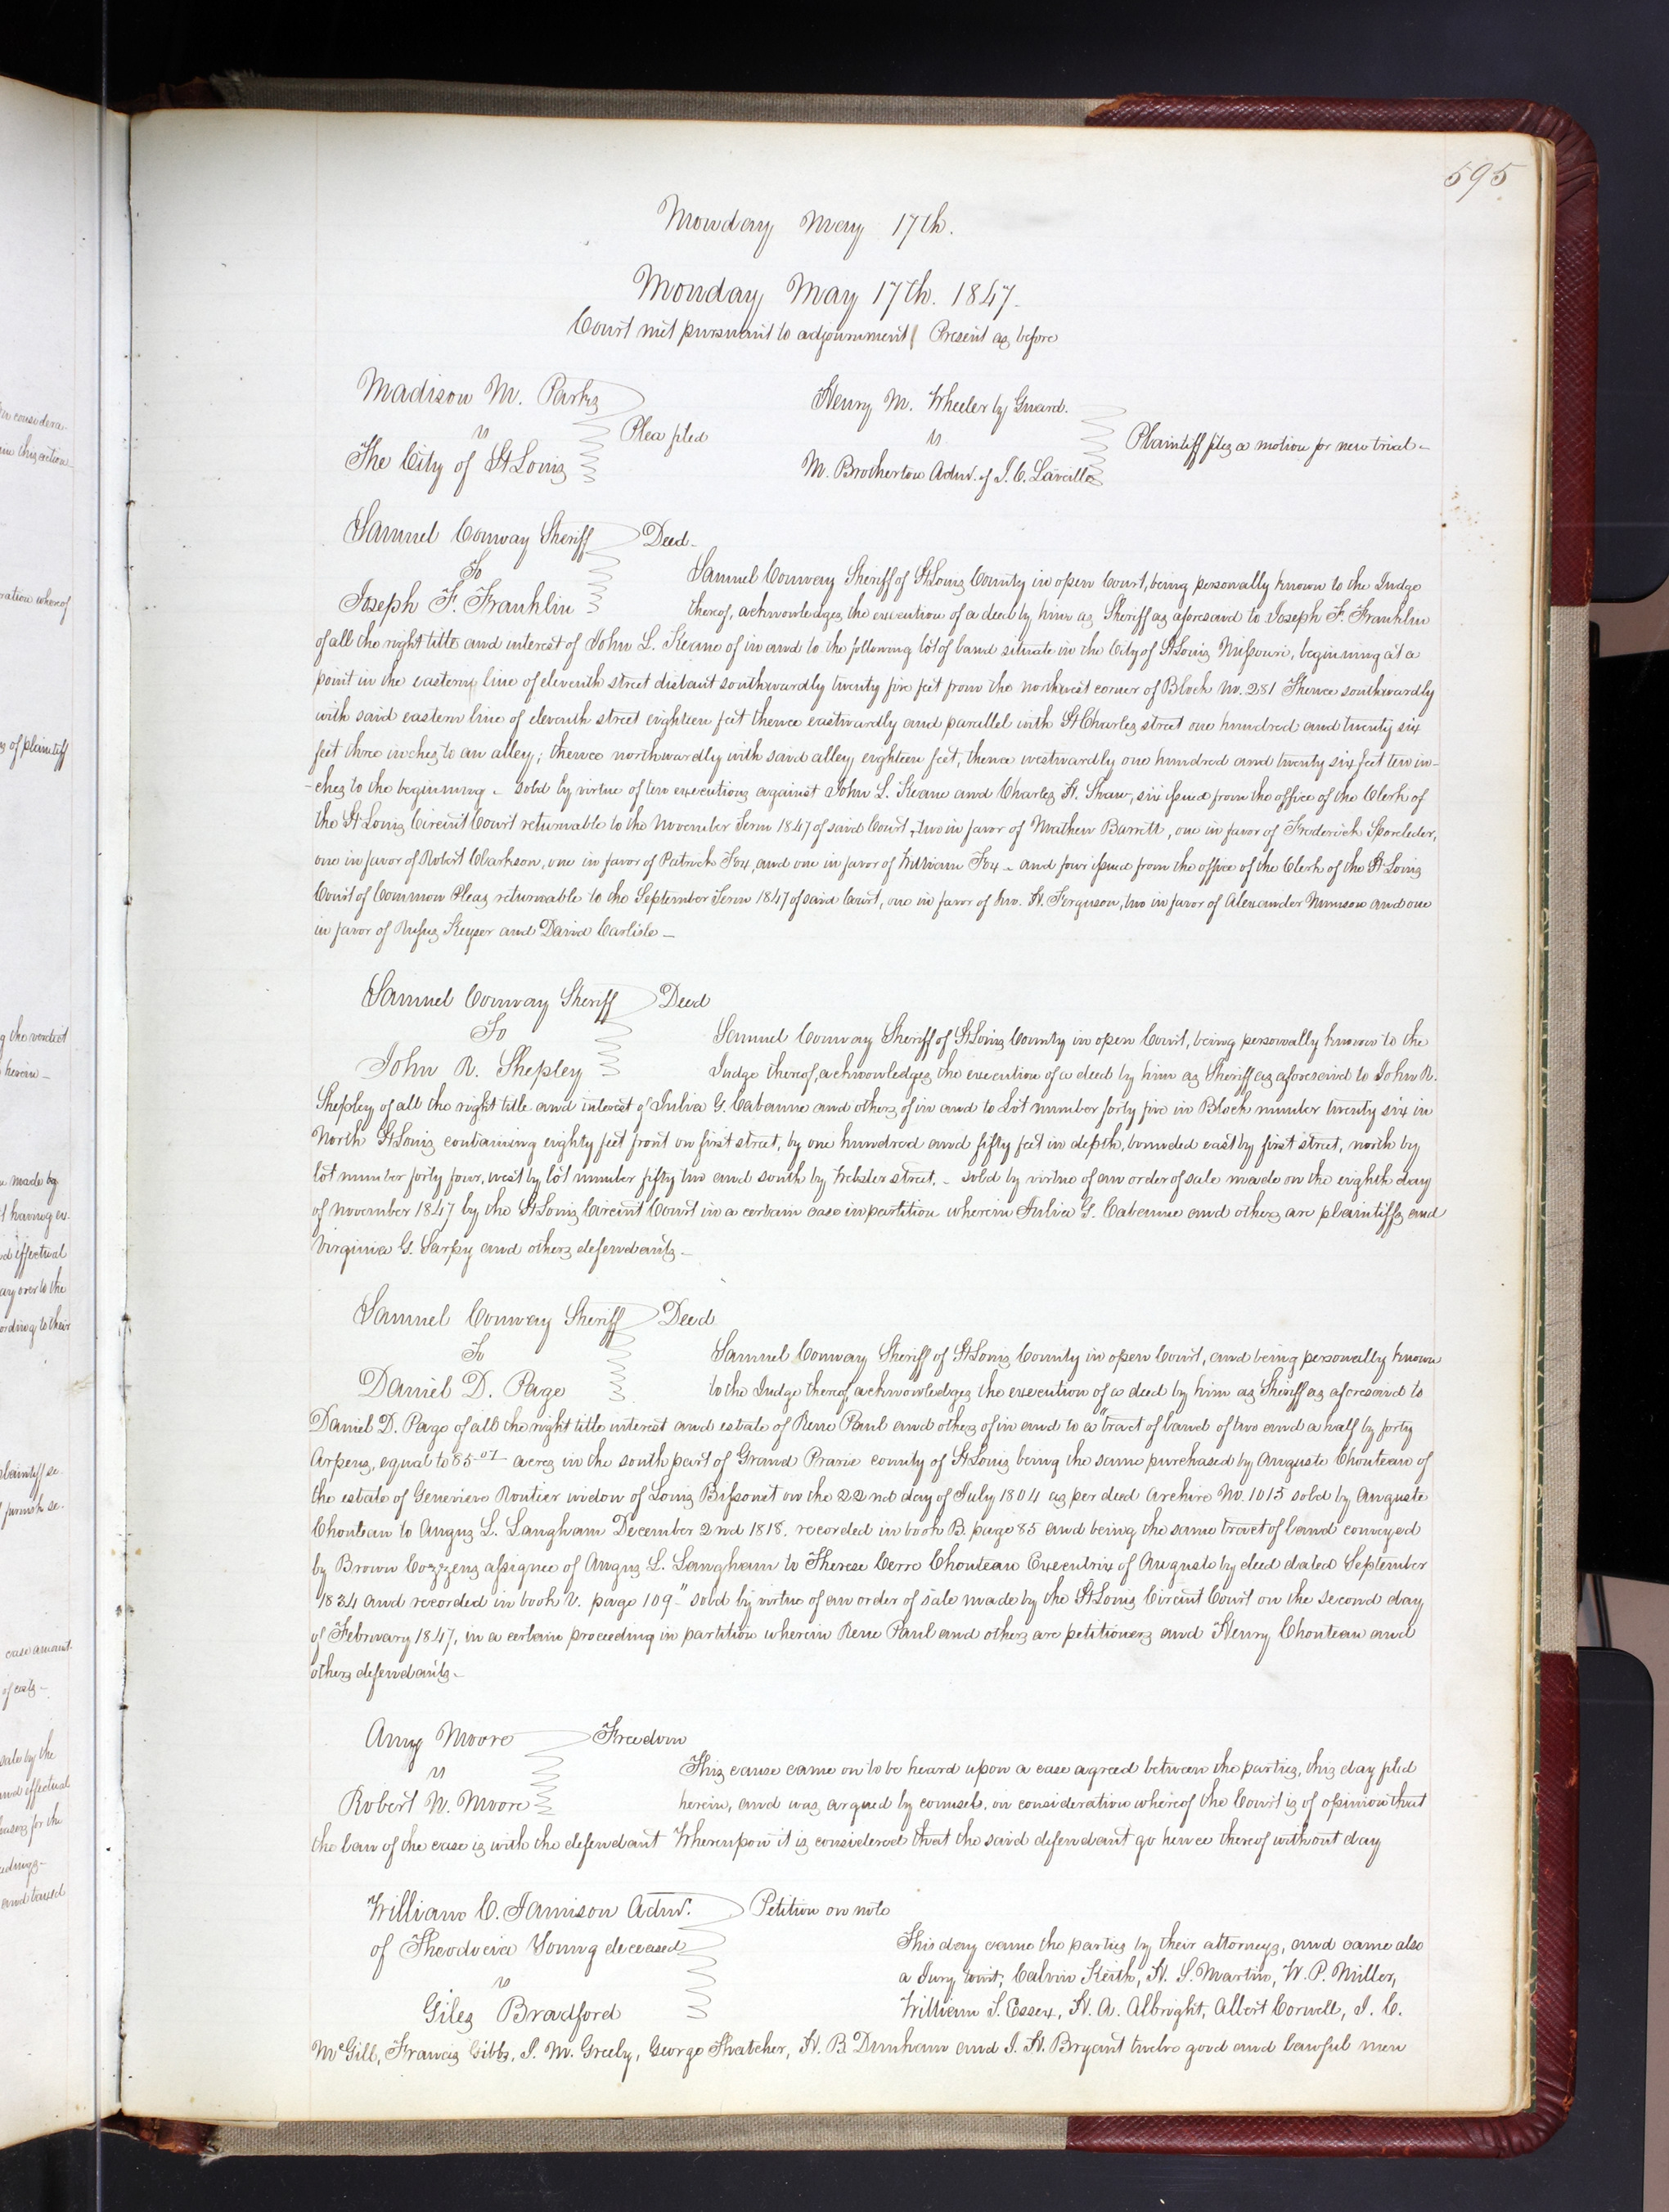 595
Monday May 17th.
Monday May 17th. 1847.
Court met pursuant to adjournment Present as before
Madison M. Parks
vs
The City of St Louis
Plea filed
Henry M. Wheeler by Guard.
vs
M. Brotherton Adm. of J. C. Laveille
Plaintiff files a motion for new trial -
Samuel Conway Sheriff
Deed -
To
Joseph F. Franklin
Samuel Conway Sheriff of St Louis County in open Court, being personally known to the Judge
thereof, acknowledges the execution of a deed by him as Sheriff as aforesaid to Joseph F. Franklin
of all the right title and interest of John L. Keane of in and to the following lot of land situate in the City of St Louis Missouri, beginning at a
point in the eastern line of eleventh street distant southwardly twenty five feet from the northwest corner of Block No. 281 Thence southwardly
with said eastern line of eleventh street eighteen feet thence eastwardly and parallel with St Charles street one hundred and twenty six
feet three inches to an alley; thence northwardly with said alley eighteen feet, thence westwardly one hundred and twenty six feet ten in-
-ches to the beginning - sold by virtue of ten executions against John L. Keane and Charles H. Shaw, six issued from the office of the Clerk of
the St Louis Circuit Court returnable to the November Term 1847 of said Court, two in favor of Mathew Barrett, one in favor of Frederick Sporleder,
one in favor of Robert Clarkson, one in favor of Patrick Fox, and one in favor of William Fox - and four issued from the office of the Clerk of the St Louis
Court of Common Pleas returnable to the September Term 1847 of said Court, one in favor of H. Ferguson, two in favor of Alexander and one
in favor of Rufus Keyser and David Carlisle -
Samuel Conway Sheriff
Deed
To
John R. Shepley
Samuel Conway Sheriff of St Louis County in open Court, being personally known to the
Judge thereof, acknowledges the execution of a deed by him as Sheriff as aforesaid to John R.
Shepley of all the right title and interest of Julia G. Cabanne and others of in and to Lot number forty five in Block number twenty six in
North St Louis containing eighty feet front on first street, by one hundred and fifty feet in depth, bounded east by first street, north by
lot number forty four, west by lot number fifty two and south by Webster street. - sold by virtue of an order of sale made on the eighth day
of November 1847 by the St Louis Circuit Court in a certain case in partition wherein Julia G. Cabanne and others are plaintiffs and
Virginia G. Sarpy and others defendants -
Samuel Conway Sheriff
Deed
To
Daniel D. Page
Samuel Conway Sheriff of St Louis County in open Court, and being personally known
to the Judge thereof acknowledges the execution of a deed by him as Sheriff as aforesaid to
Daniel D. Page of all the right title interest and estate of Rene Paul and others of in and to a "tract of land of two and a half by forty
Arpens, equal to 85 07 acres in the south part of Grand Prarie county of St Louis being the same purchased by Auguste Chouteau of
the estate of Genevieve Routier widow of Louis Bissonet on the 22nd day of July 1804 as per deed Archive No. 1015 sold by Auguste
Chouteau to Angus L. Langham December 2nd 1818. recorded in book B. page 85 and being the same tract of land conveyed
by Brown Cozzens assignee of Angus L. Langham to Therese Cerre Chouteau Executrix of Auguste by deed dated September
1834 and recorded in book V. page 109" sold by virtue of an order of sale made by the St Louis Circuit Court on the second day
of February 1847, in a certain proceeding in partition wherein Rene Paul and others are petitioners and Henry Chouteau and
others defendants -
Amy Moore
Freedom
vs
Robert N. Moore
This cause came on to be heard upon a case agreed between the parties, this day filed
herein, and was argued by counsels, on consideration whereof the Court is of opinion that
the law of the case is with the defendant Whereupon it is considered that the said defendant go hence thereof without day
William C. Jamison Adm.
Petition on note
of Theodocia Young deceased
vs
Giles Bradford
This day came the parties by their attorneys, and came also
a Jury towit; Calvin Keith, H. S. Martin, W. P. Miller,
William T. Essex, H. A. Albright, Albert Corwell, J. C.
McGill, Francis Gibbs, J. M. Greely, George Thatcher, H. B. Dunham and J. H. Bryant twelve good and lawful men